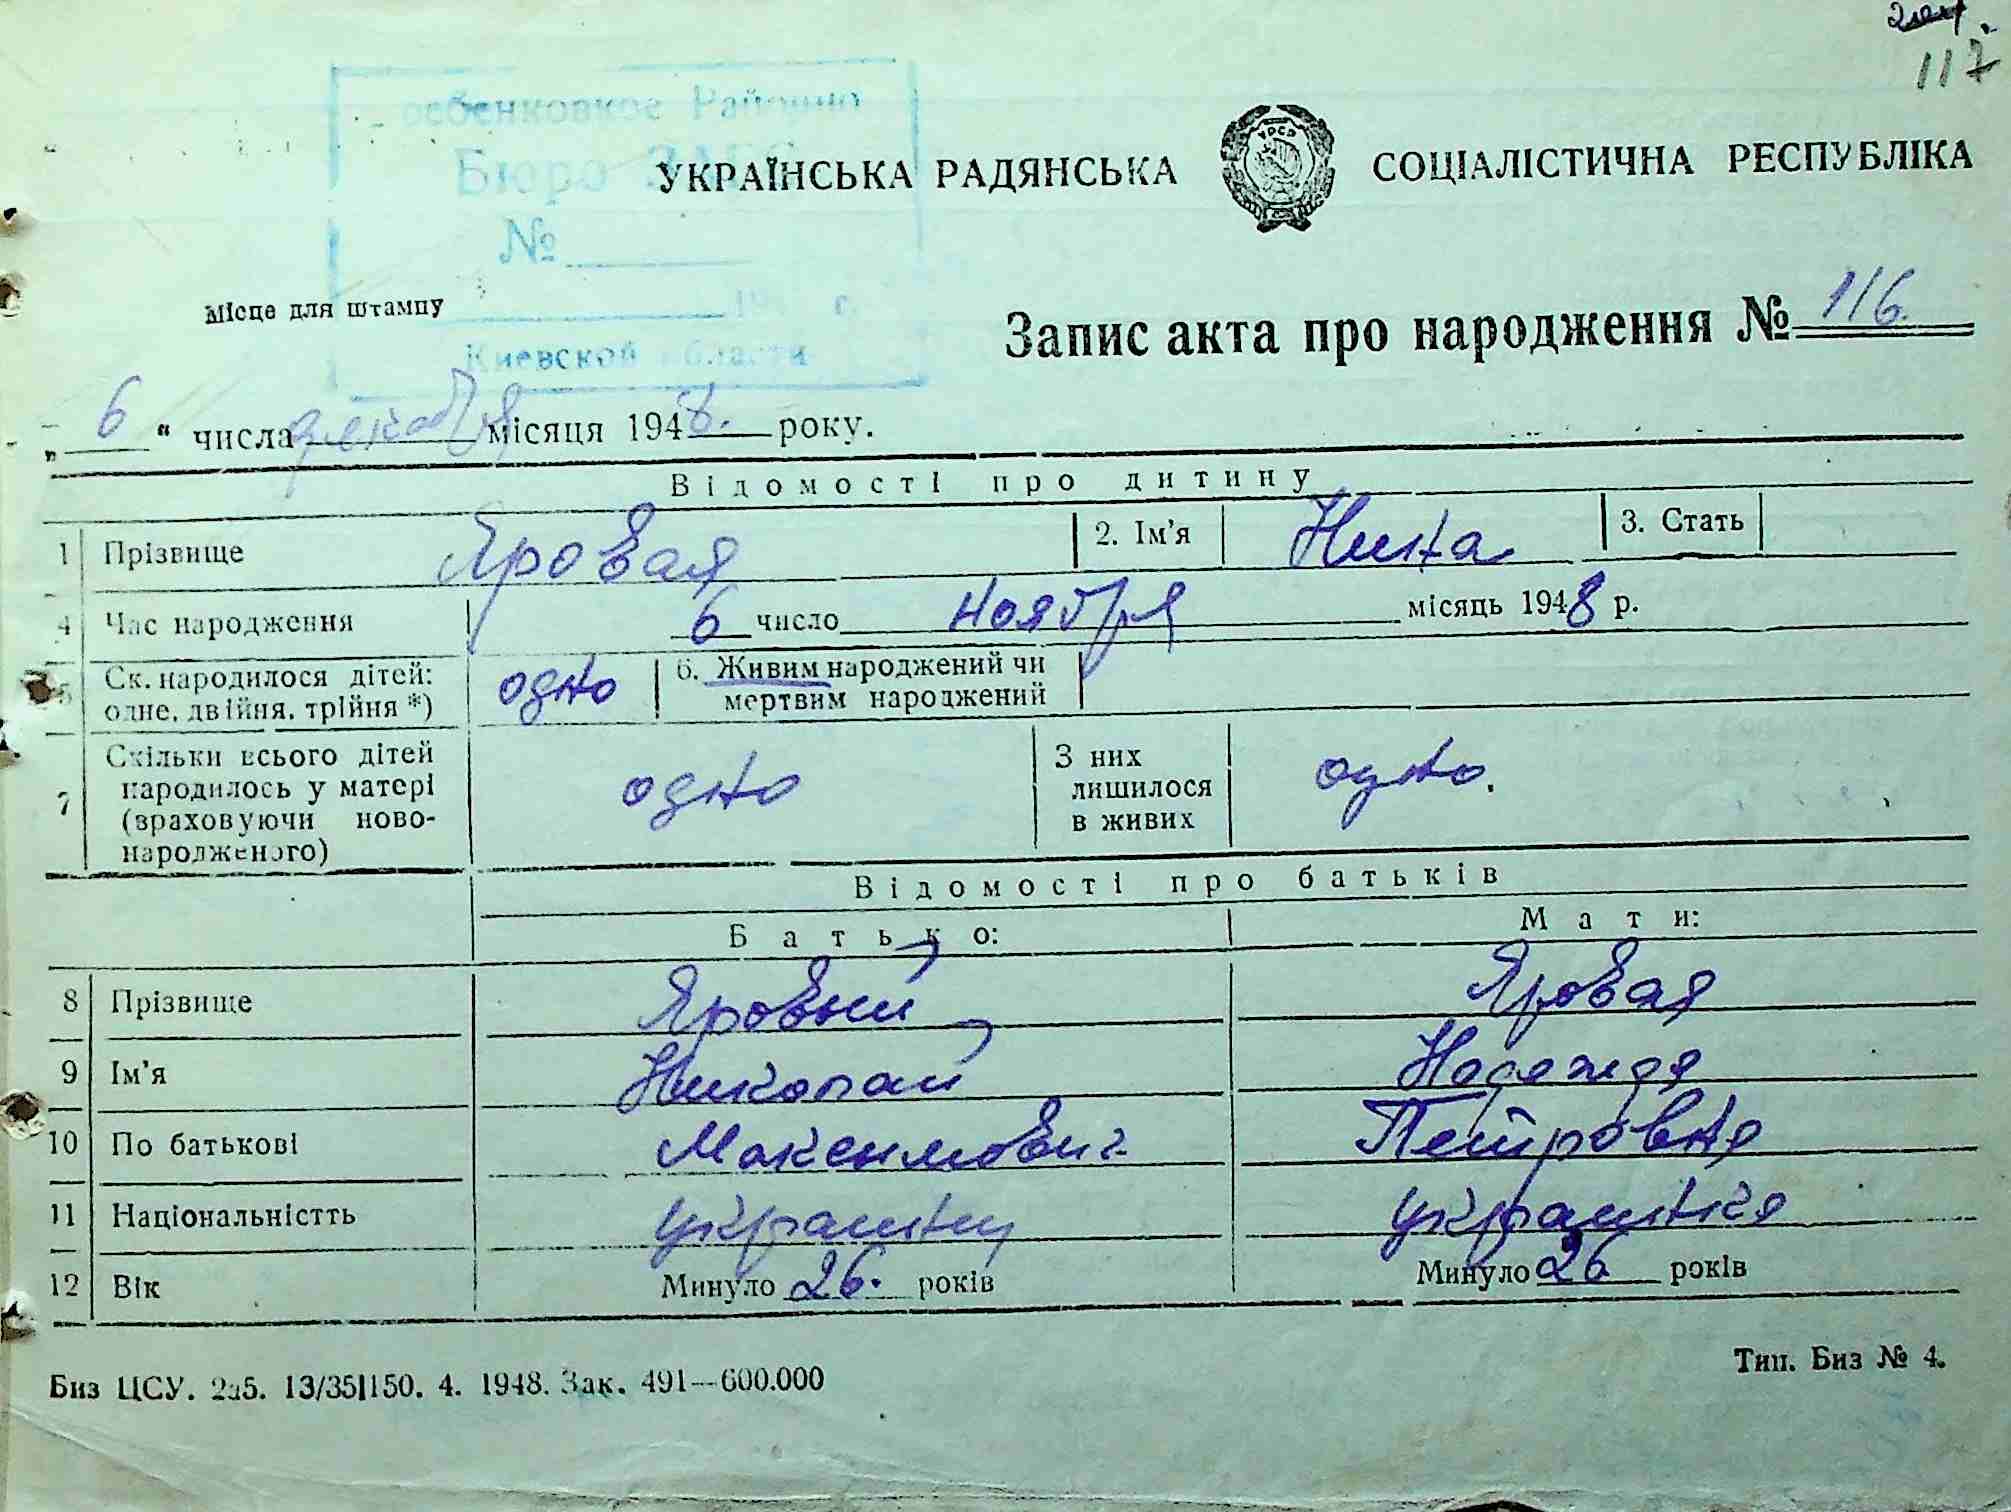 117
Районно
Бюро ЗАГС
№
УКРАЇНСЬКА РАДЯНСЬКА СОЦІАЛІСТИЧНА РЕСПУБЛІКА
Місце для штампу
194 г.
Киевской области
Запис акта про народження № 116.
„ 6 “ числа декабря місяця 1948. року.
Відомості про дитину
1 Прізвище Яровая 2. Ім'я Нина 3. Стать
4 Час народження 6 число ноября місяць 1948 р.
5 Ск. народилося дітей: одно 6. Живим народжений чи
одне, двійня, трійня *) мертвим народжений
7 Скільки всього дітей одно З них одно.
народилось у матері лишилося
(враховуючи ново- в живих
народженого)
Відомості про батьків
Батько: Мати:
8 Прізвище Яровый Яровая
9 Ім'я Николай Надежда
10 По батькові Максимович Петровна
11 Національністть украинец украинка
12 Вік Минуло 26. років Минуло 26 років
Биз ЦСУ. 2а5. 13/35|150. 4. 1948. Зак. 491—600.000 Тип. Биз № 4.